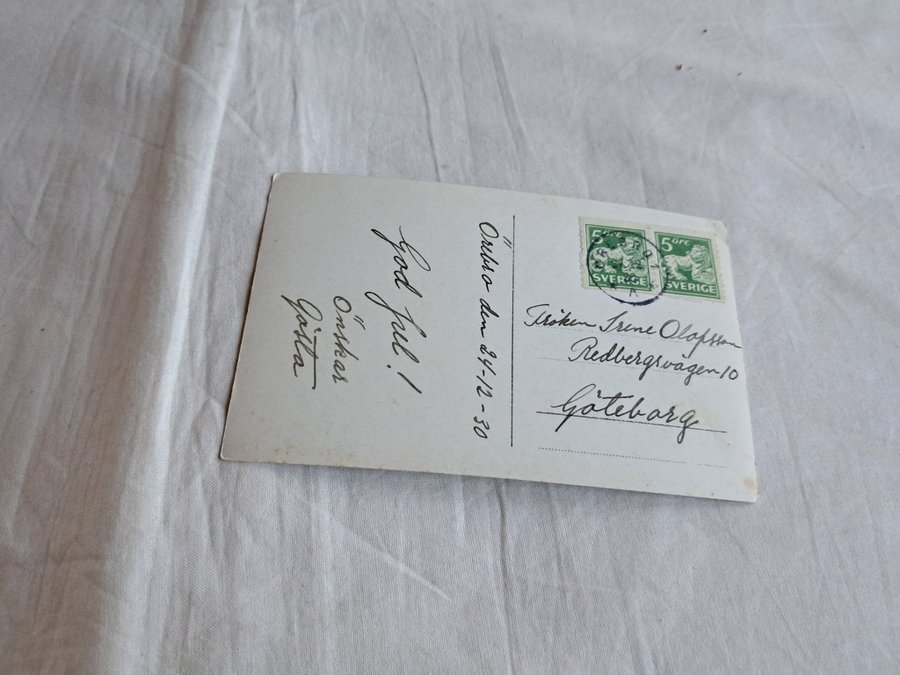 Örebro den 24-12-30
God Jul!
Önskar
Gösta
5 ÖRE
SVERIGE
5 ÖRE
SVERIGE
Fröken Irene Olofsson
Redbergsvägen 10
Göteborg